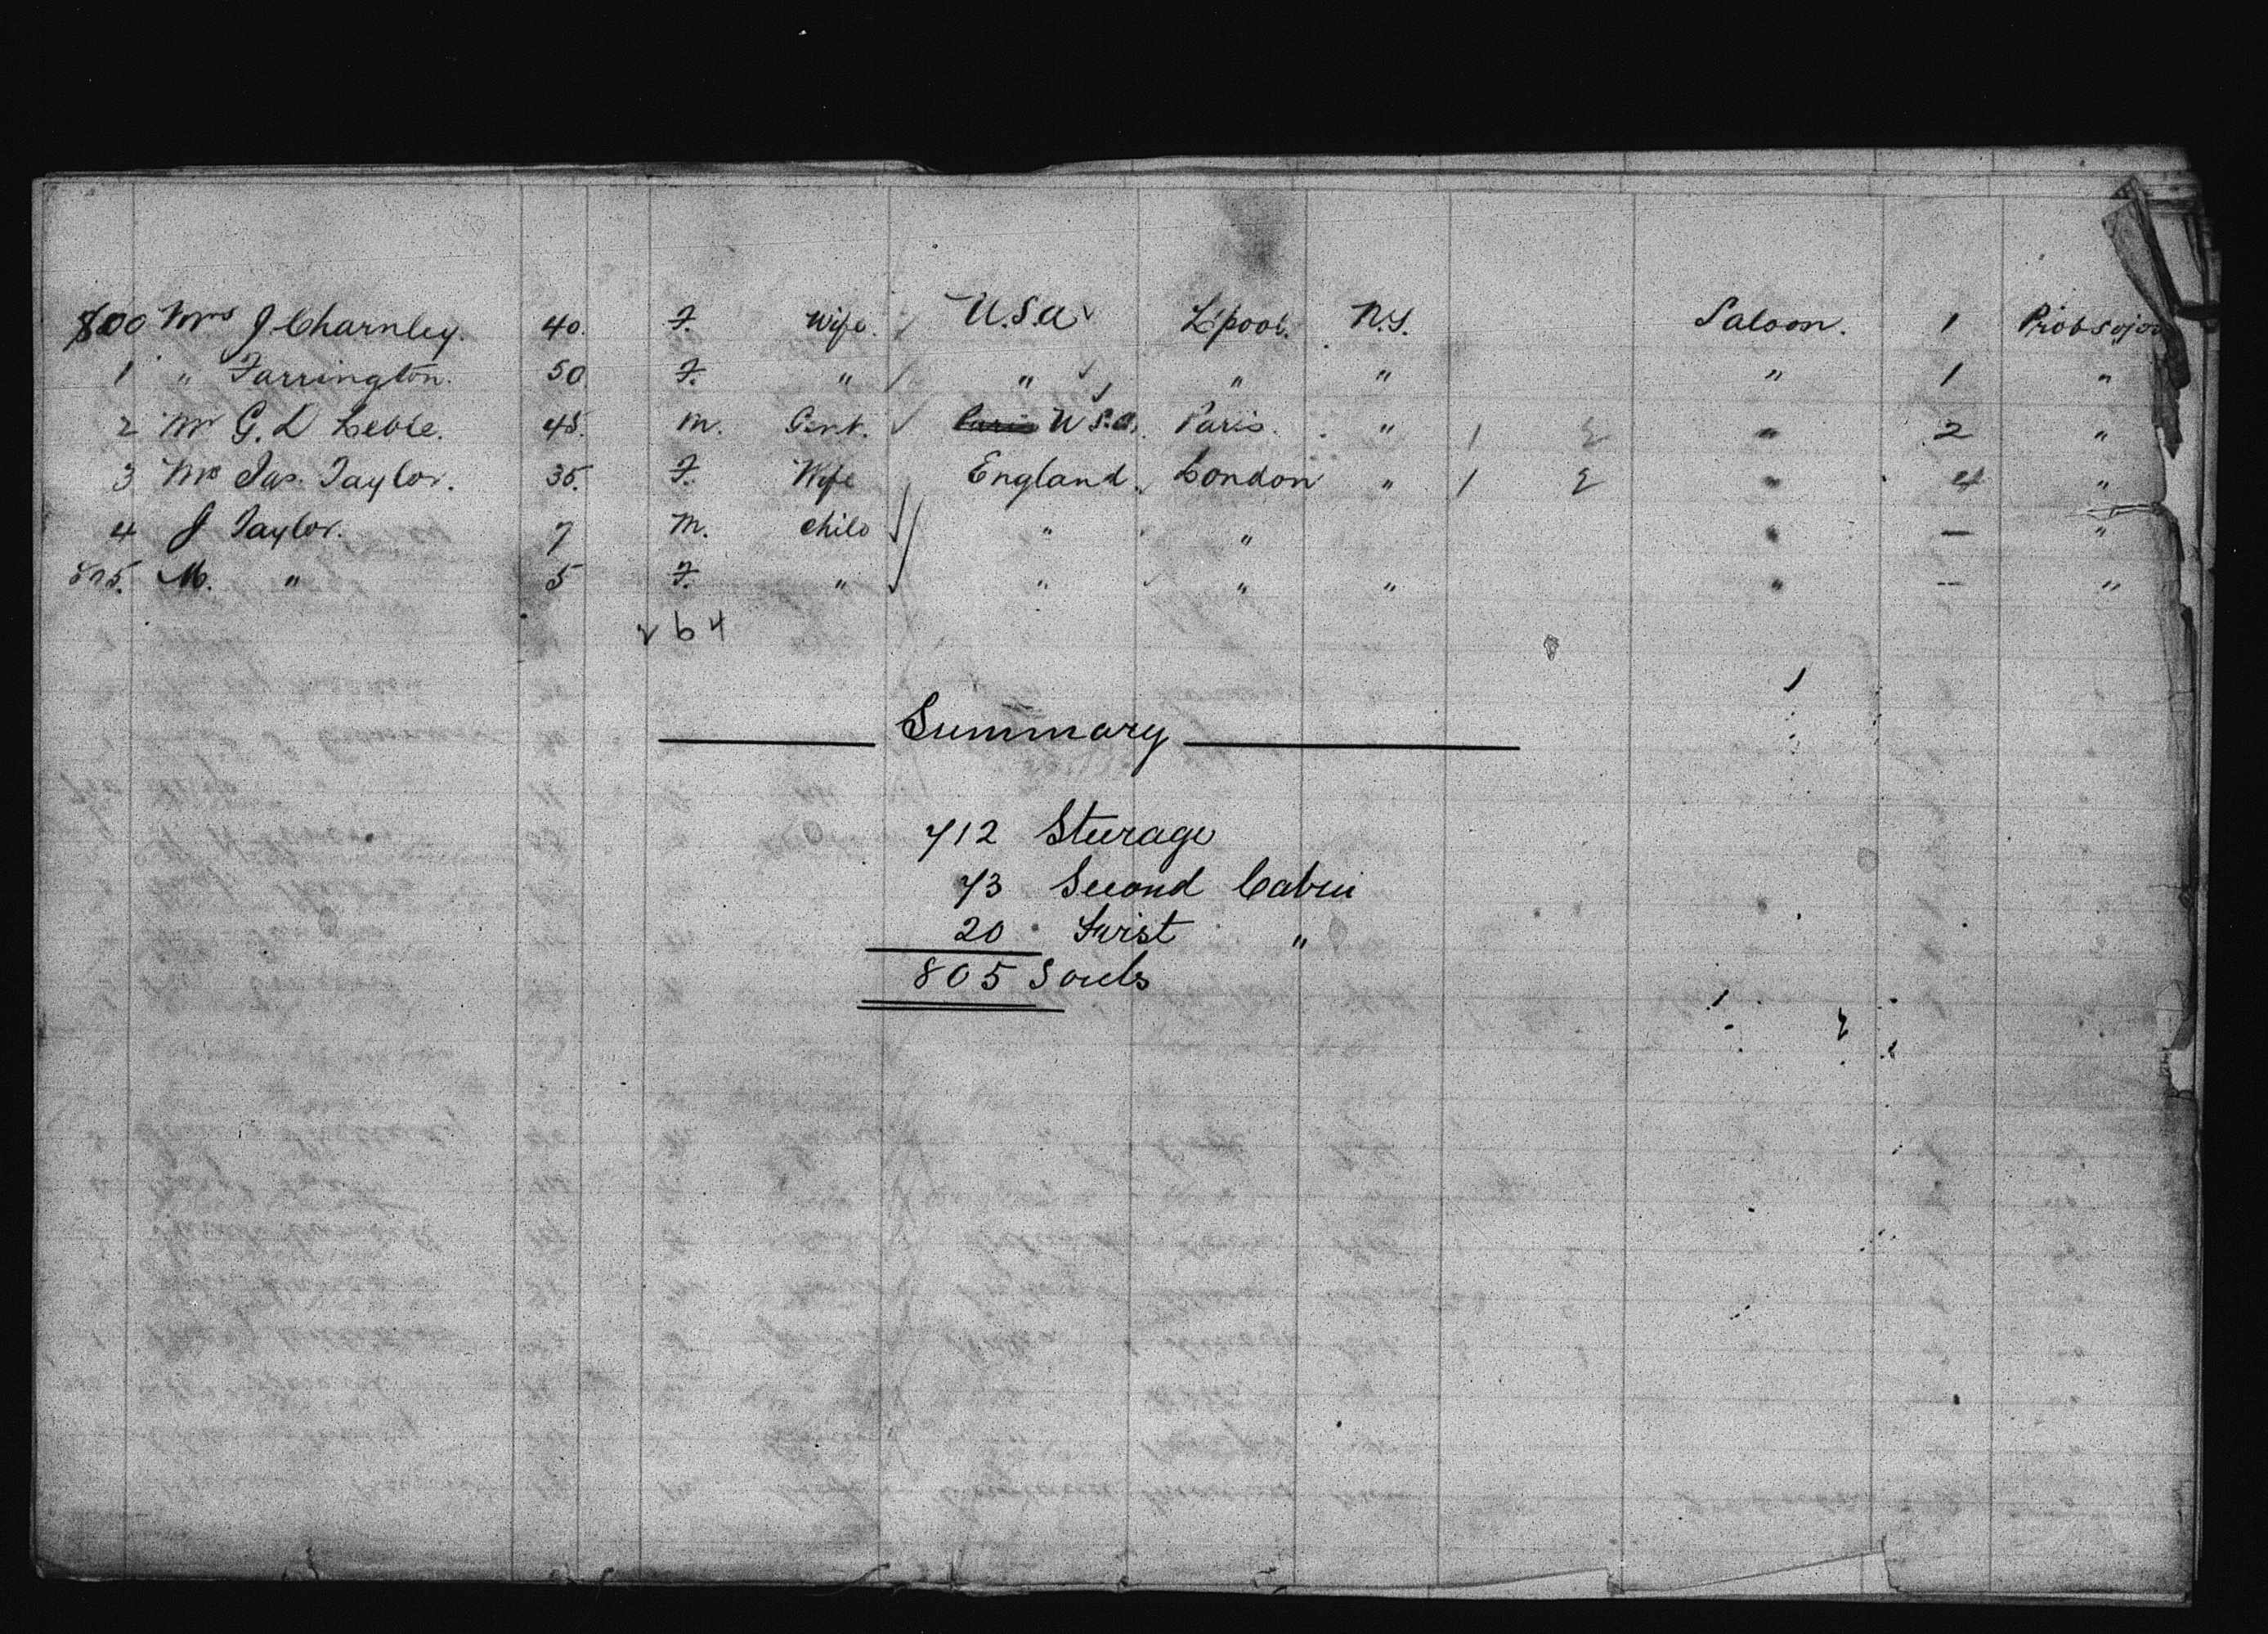 800 Mrs J. Charnley. 40. F. Wife. U.S.A. L'pool. N.Y. Saloon. 1 Prob sojo
1 " Farrington. 50 F. " " " " " 1 "
2 Mr G. D 48. M. Gent. Paris U S.A. Paris. " 1 2 " 2 "
3 Mrs Jas. Taylor. 35. F. Wife England. London " 1 2 " 4 "
4 J Taylor. 7 M. Child " " " — "
805. M. " 5 F. " " " " " — "
264
Summary
712 Steerage
73 Second Cabin
20 First "
805 Souls